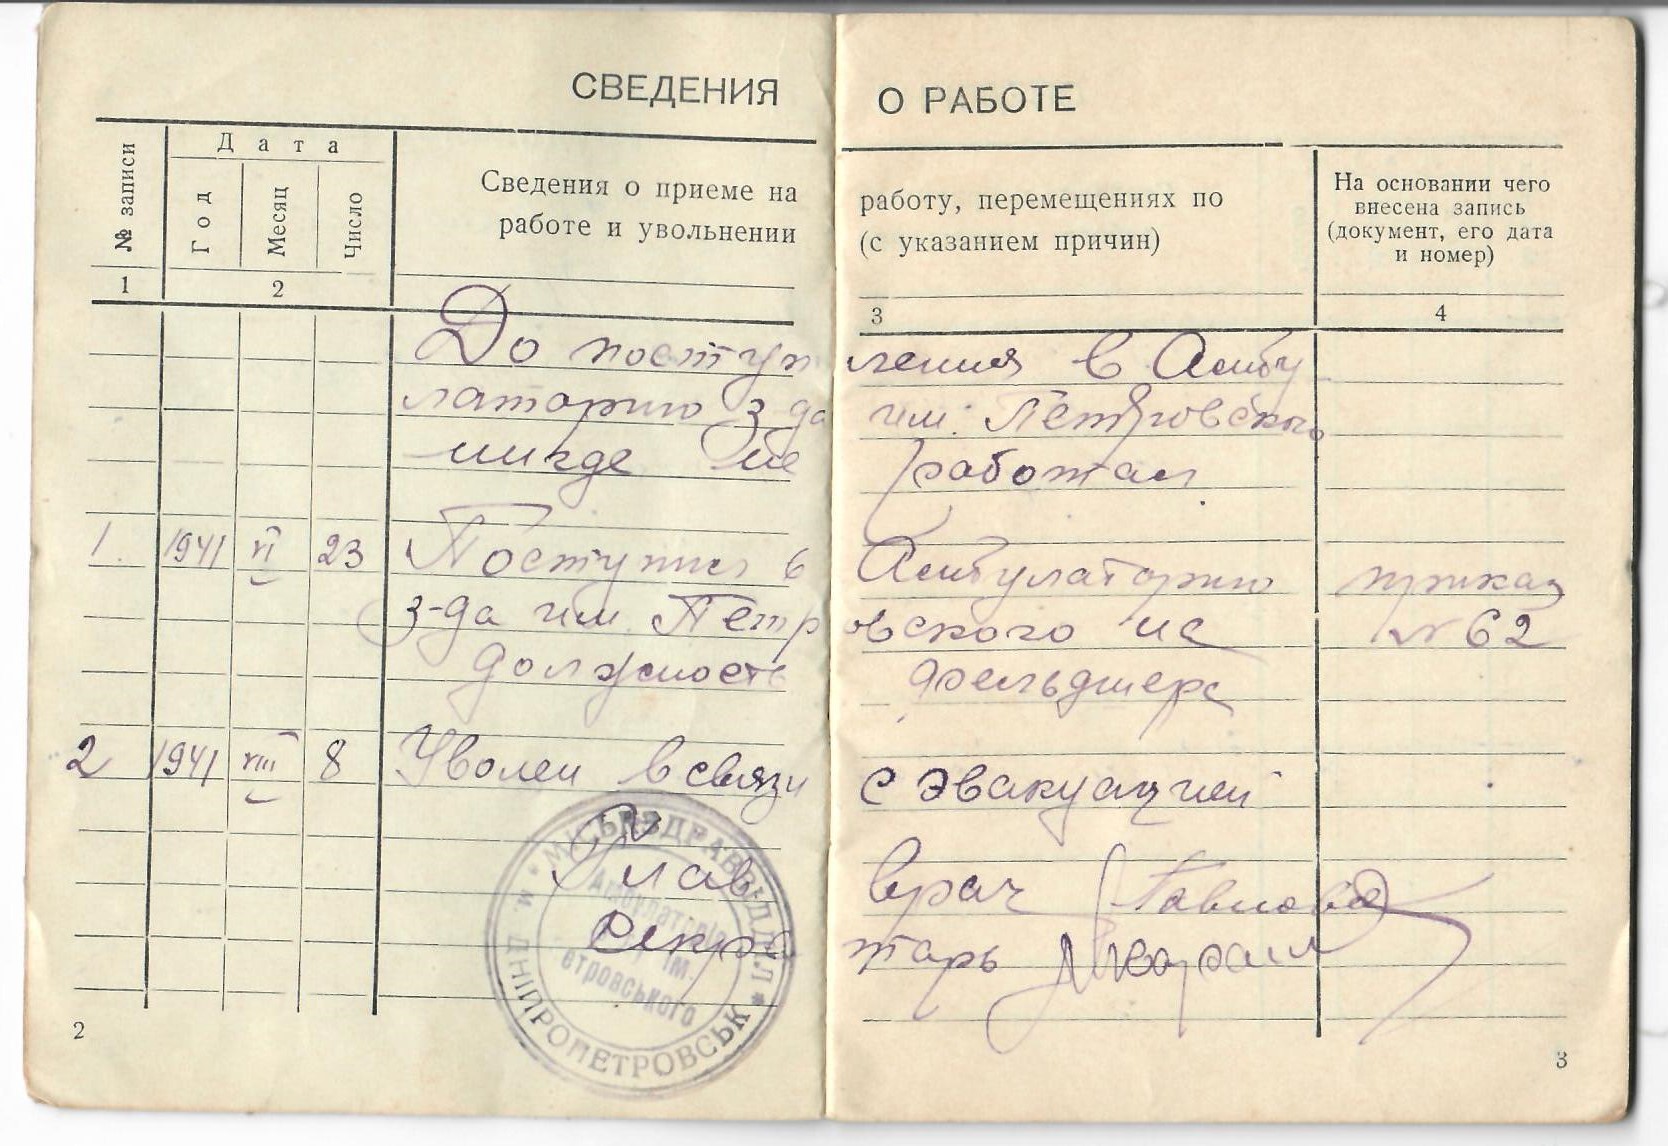 СВЕДЕНИЯ О РАБОТЕ
№ записи
Дата
Год
Месяц
Число
Сведения о приеме на работу, перемещениях по
работе и увольнении (с указанием причин)
На основании чего
внесена запись
(документ, его дата
и номер)
1 2 3 4
До поступления в Амбу
латорию з-да им. Петровского
нигде не работал
1. 1941 VI 23 Поступил в Амбулаторию приказ
з-да им. Петровского на № 62
должность фельдшера
2 1941 VIII 8 Уволен в связи с эвакуацией
Глав врач Павлова
Секретарь
МІСЬКЗДРАВВІДДІЛ * м. ДНІПРОПЕТРОВСЬК *
Амбулаторія
ім.
етровського
2
3